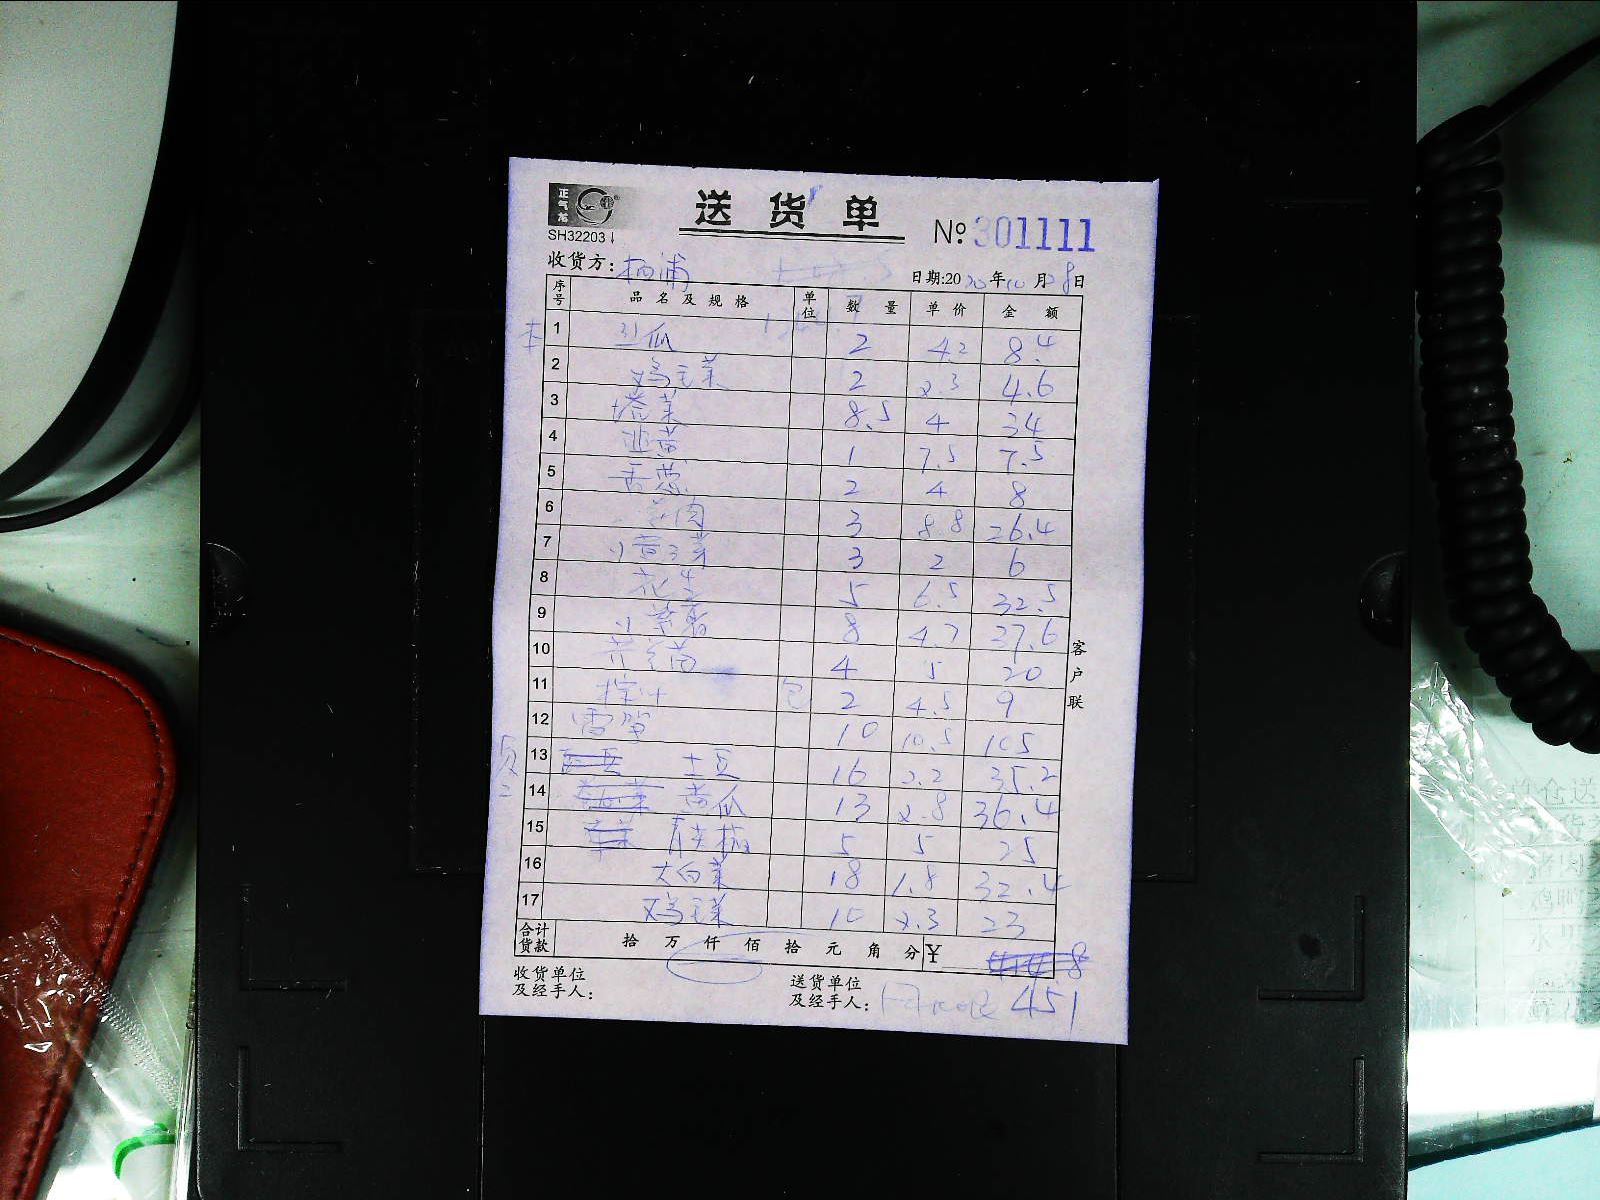 正气龙
送货单
SH32203
№ 301111
收货方：
日期:2020年10月28日
序号 品名及规格 单位 数量 单价 金额
1 瓜 2 4.2 8.4
2 鸡毛菜 2 2.3 4.6
3 塔菜 8.5 4 34
4 韭黄 1 7.5 7.5
5 香葱 2 4 8
6 肉 3 8.8 26.4
7 3 2 6
8 花生 5 6.5 32.5
9 小 8 4.7 37.6
10 4 5 20
11 包 2 4.5 9
12 雷笋 10 10.5 105
13 土豆 16 2.2 35.2
14 黄瓜 13 2.8 36.4
15 青尖椒 5 5 25
16 大白菜 18 1.8 32.4
17 鸡毛菜 10 2.3 23
合计货款 拾 万 仟 佰 拾 元 角 分 ¥
收货单位及经手人：
送货单位及经手人： 451
客户联